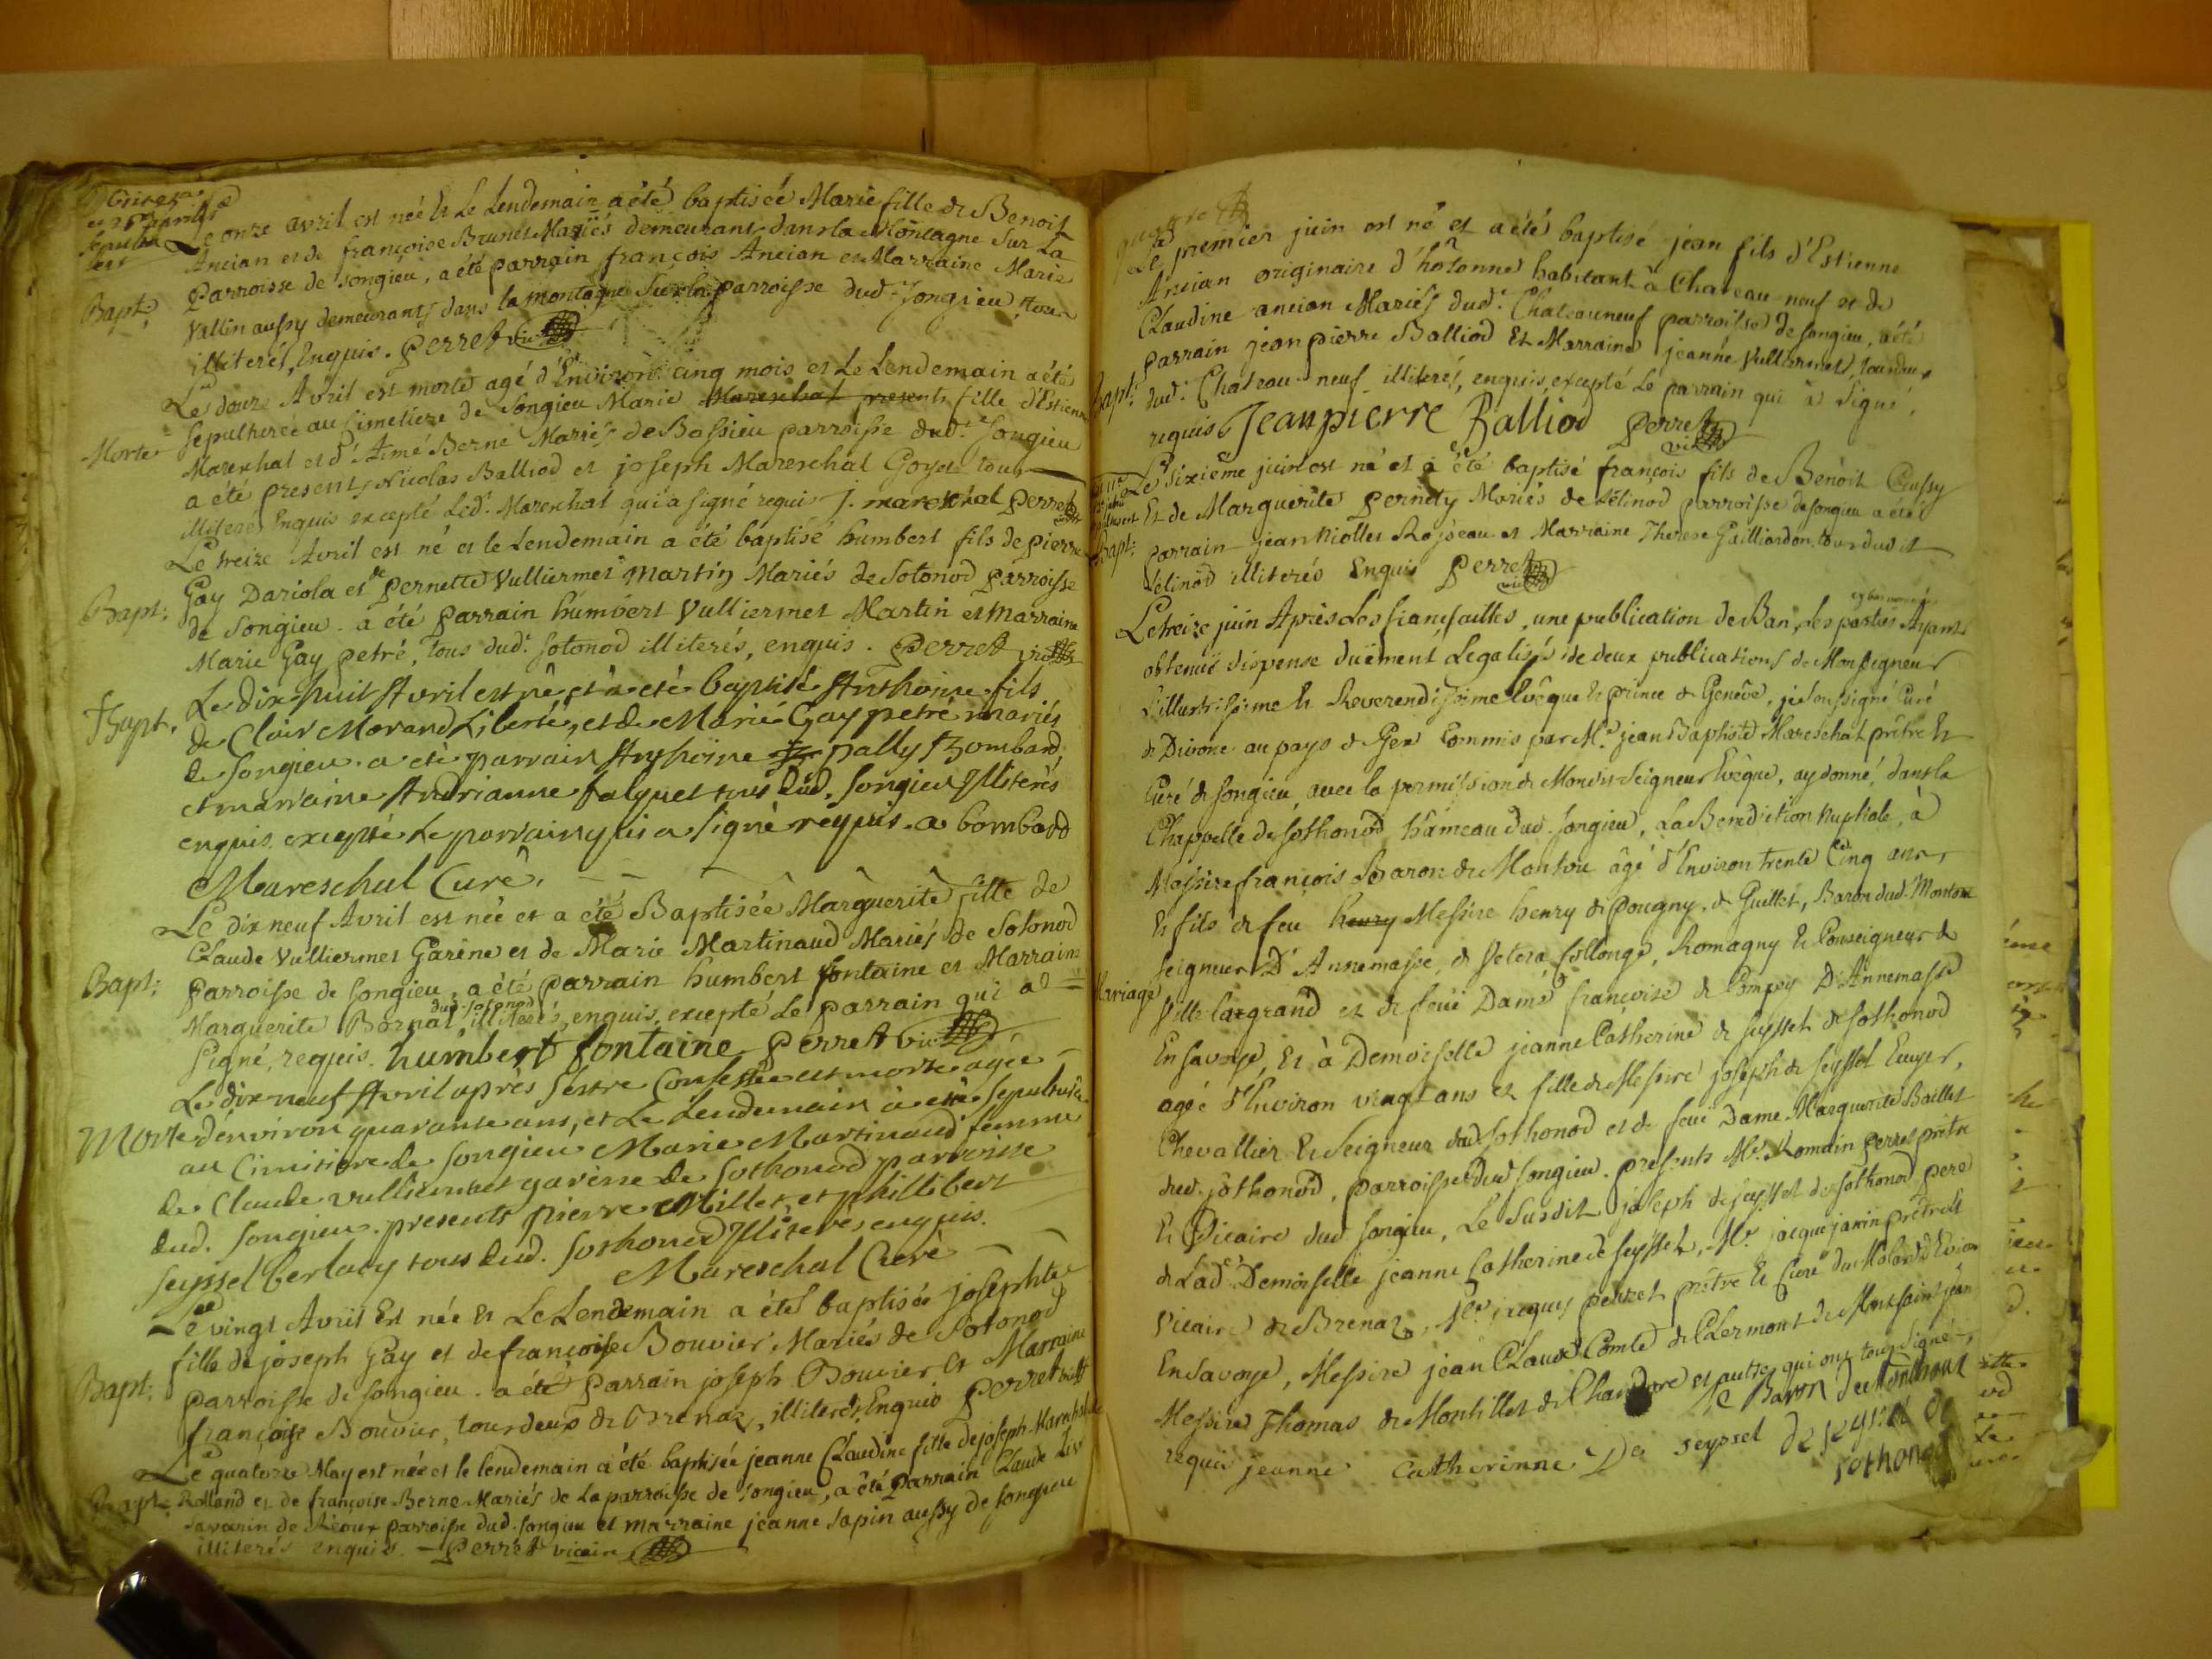 Le onze avril est née et Le Lendemain a été baptisée Marie fille de Benoit
Ancian et de françoise Brunet Mariés demeurant dans la Montagne Sur La
Parroisse de songieu, a été parrain françois Ancian et Marraine Marie
Vallin aussy demeurants dans la montagne Sur la parroisse dud. Songieu tous
illiterés, Enquis. Perret vic
Bapt:
Le douze Avril est morte agé d'Environ cinq mois et Le Lendemain a été
sepulturée au Simetiere de Songieu Marie Mareschal presents fille d'Estienne
Mareschal et d'Aimé Berne Mariés de Bassieu parroisse dud. Songieu
a été presents Nicolas Balliod et joseph Mareschal Goyet tous
illiterés Enquis excepté Led. Mareschal qui a signé requis j. mareschal Perret
Morte
Le treize Avril est né et le Lendemain a été baptisé humbert fils de pierre
Gay Dariola et de Pernette Vulliermet Martin Mariés de Sotonod Parroisse
de Songieu. a été Parrain humbert Vulliermet Martin et Marraine
Marie Gay petré, Tous dud. Sotonod illiterés, enquis. Perret vic
Bapt:
Le dix huit Avril est né et a eté baptisé Anthoine fils
de Clair Morand Liberté, et de Marie Gay petré mariés
de Songieu. a eté parrain Anthoine pally Bombard
et marraine Andrianne falquet tous dud. Songieu Illiterés
enquis. excepté Le parrain qui a signé requis. a bombard
Mareschal Curé.
Bapt.
Le dix neuf Avril est née et a été Baptisée Marguerite fille de
Claude Vulliermet Garêne et de Marie Martinaud Mariés de Sotonod
Parroisse de songieu, a été parrain humbert fontaine et Marraine
Marguerite Bornat dud. sotonod illiterés, enquis, excepté Le parrain qui a
Signé, requis. humbert fontaine Perret vic
Bapt:
Le dix neuf Avril après s'estre Confessée est morte agée
d'environ quarante ans, et Le Lendemain a été sepulturée
au Cimitiere de Songieu Marie Martinaud femme
de Claude vulliermet garêne de Sothonod parroisse
dud. Songieu. presents pierre Millet, et phillibert
seyssel berlacy tous dud. Sothonod Illiterés enquis.
Mareschal Curé
Morte
Le vingt Avril Est née et Le Lendemain a été baptisée josephte
fille de joseph Gay et de françoise Bouvier, Mariés de Sotonod
parroisse de Songieu. a été Parrain joseph Bouvier et Marraine
françoise Bouvier, tous deux de Brenaz, illiterés, Enquis Perret vic
Bapt:
Le quatorze May est née et le lendemain a été baptisée jeanne Claudine fille de joseph
Rolland et de françoise Berne Mariés de La parroisse de songieu, a été Parrain Claude
Savarin de parroisse dud. songieu et marraine jeanne sapin aussy de songieu
illiterés enquis. Perret vicaire
Bapt:
Le premier juin est né et a été baptisé jean fils d'Estienne
Ancian originaire d'hotonne habitant à Chateau-neuf et de
Claudine ancian Mariés dud. Chateauneuf parroisse de songieu, a été
parrain jean pierre Balliod Et Marraine jeanne Vulliermet, tous deux
dud. Chateau-neuf illiterés, enquis, excepté Le parrain qui a Signé,
requis Jeanpierre Balliod Perret vic
Bapt:
Le sixième juin est né et a été baptisé françois fils de Benoit Cussy
Et de Marguerite pernety Mariés de Lelinod parroisse de songieu a été
parrain jean Rosseau et Marraine Therese Gailliardon tous dudit
Lelinod illiterés Enquis Perret vic
Bapt:
Le treize juin Après Les fiançailles, une publication de Ban, Les parties cy bas nommées Ayant
obtenuë dispense duëment Legalisée de deux publications de Monseigneur
L'illustrissime et Reverendissime Evêque et prince de Genève, je Soussigné Curé
de Divone au pays de Gex Commis par Mre. jean Baptiste Mareschal prêtre et
Curé de songieu, avec la permission de Mondit Seigneur Evêque, ay donné, dans la
Chappelle de Sothonod hameau dud. songieu, La Benediction Nuptiale, à
Messire françois Baron de Montou âgé d'Environ trente Cinq ans,
Et fils de feu henry Messire henry de Pougny. de Guillet, Baron dud. Montou
Seigneur D'Annemasse, de Collonge, Romagny et Conseigneur de
Ville la grand et de feüe Dame françoise de Compey D'Annemasse
En savoye, Et à Demoiselle jeanne Catherine de Seyssel de Sothonod
agée d'Environ vingt ans et fille de Messire joseph de Seyssel Ecuyer,
Chevallier Et Seigneur dud. Sothonod et de feüe Dame Marguerite Baillet
dud. Sothonod, parroisse dud. songieu. presents Mr. Romain Perret prêtre
Et Vicaire dud. songieu, Le Susdit joseph de seyssel de sothonod pere
de Lade. Demoiselle jeanne Catherine de Seyssel, Mr. jacque janin prêtre et
Vicaire de Brenaz, Mr. jacques perret prêtre Et Curé du
En savoye, Messire jean Claude Comte de Clermont de Mont saint jean
Messire Thomas de Montillet de Chandore et autres qui ont tous Signé
requis jeanne Catherinne De seyssel De seyssel de sothonod
Mariage